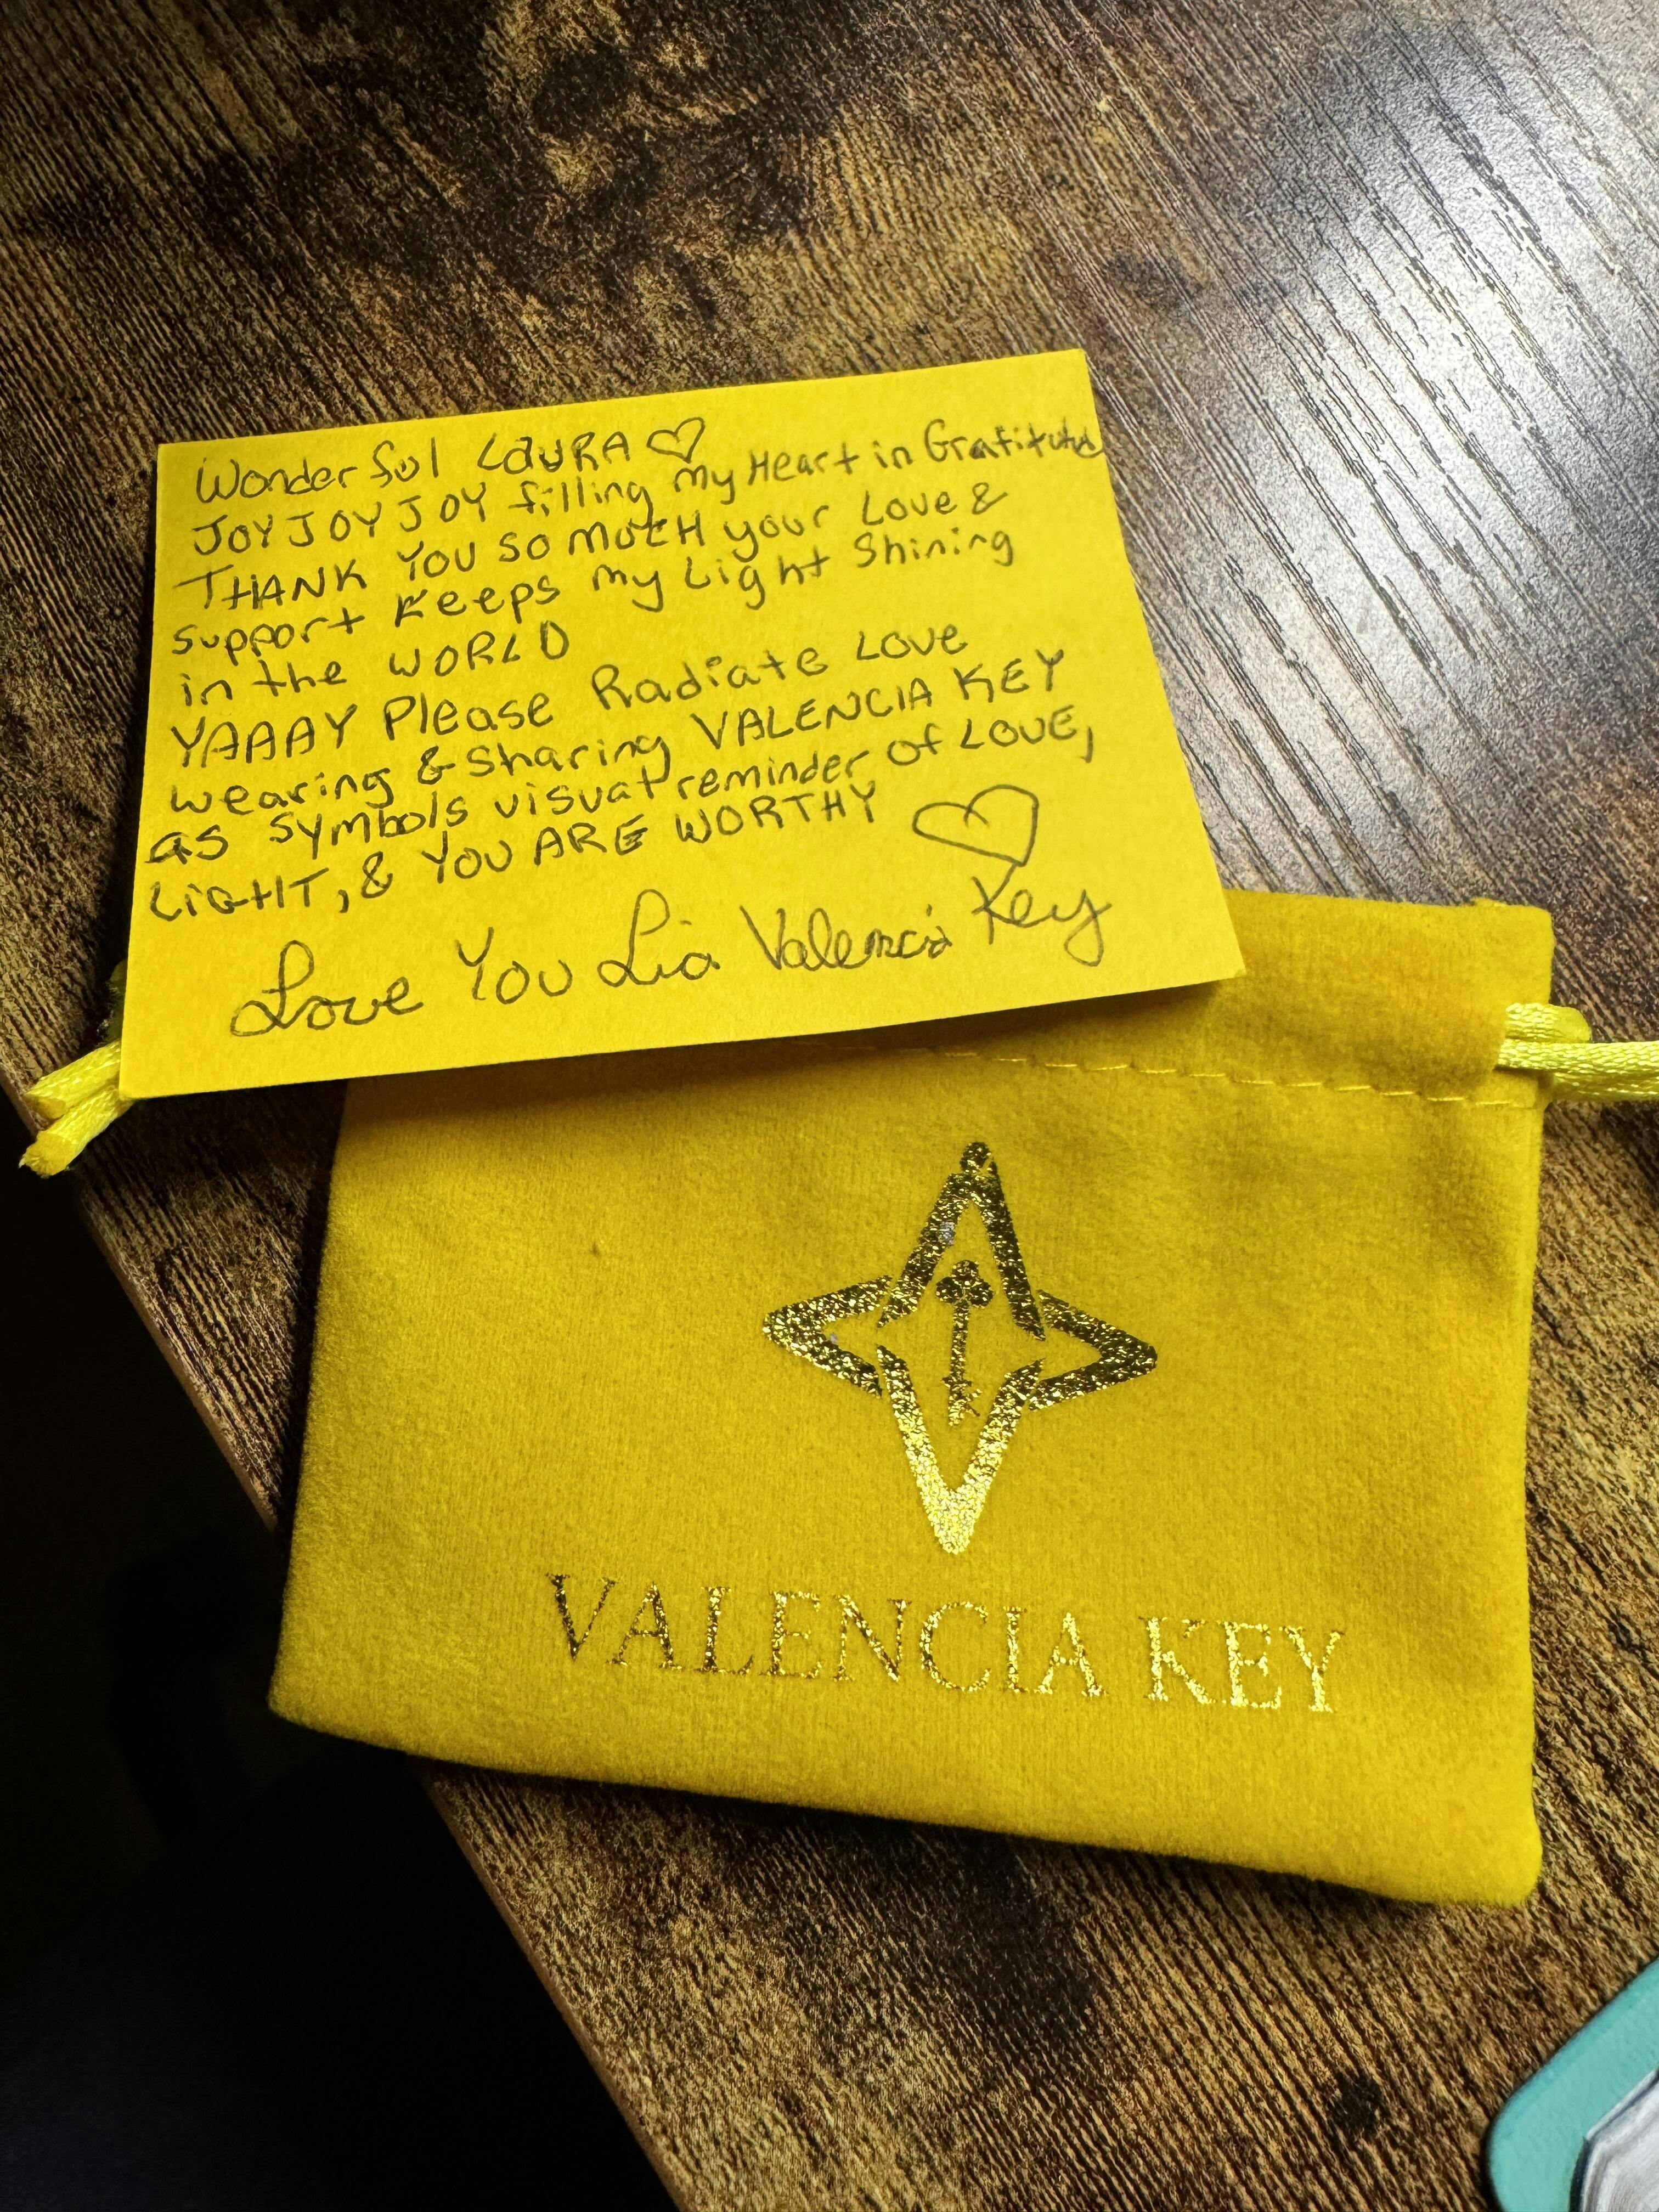 Wonderful LauRA ♡
JOY JOY JOY filling my Heart in Gratitude
THANK YOU SO MUCH your Love &
support Keeps my Light Shining
in the WORLD
YAAAY Please Radiate Love
wearing & Sharing VALENCIA KEY
as Symbols visual reminder of LOVE,
LiGHT, & YOU ARE WORTHY ♡
Love You Lia Valencia Key
VALENCIA KEY